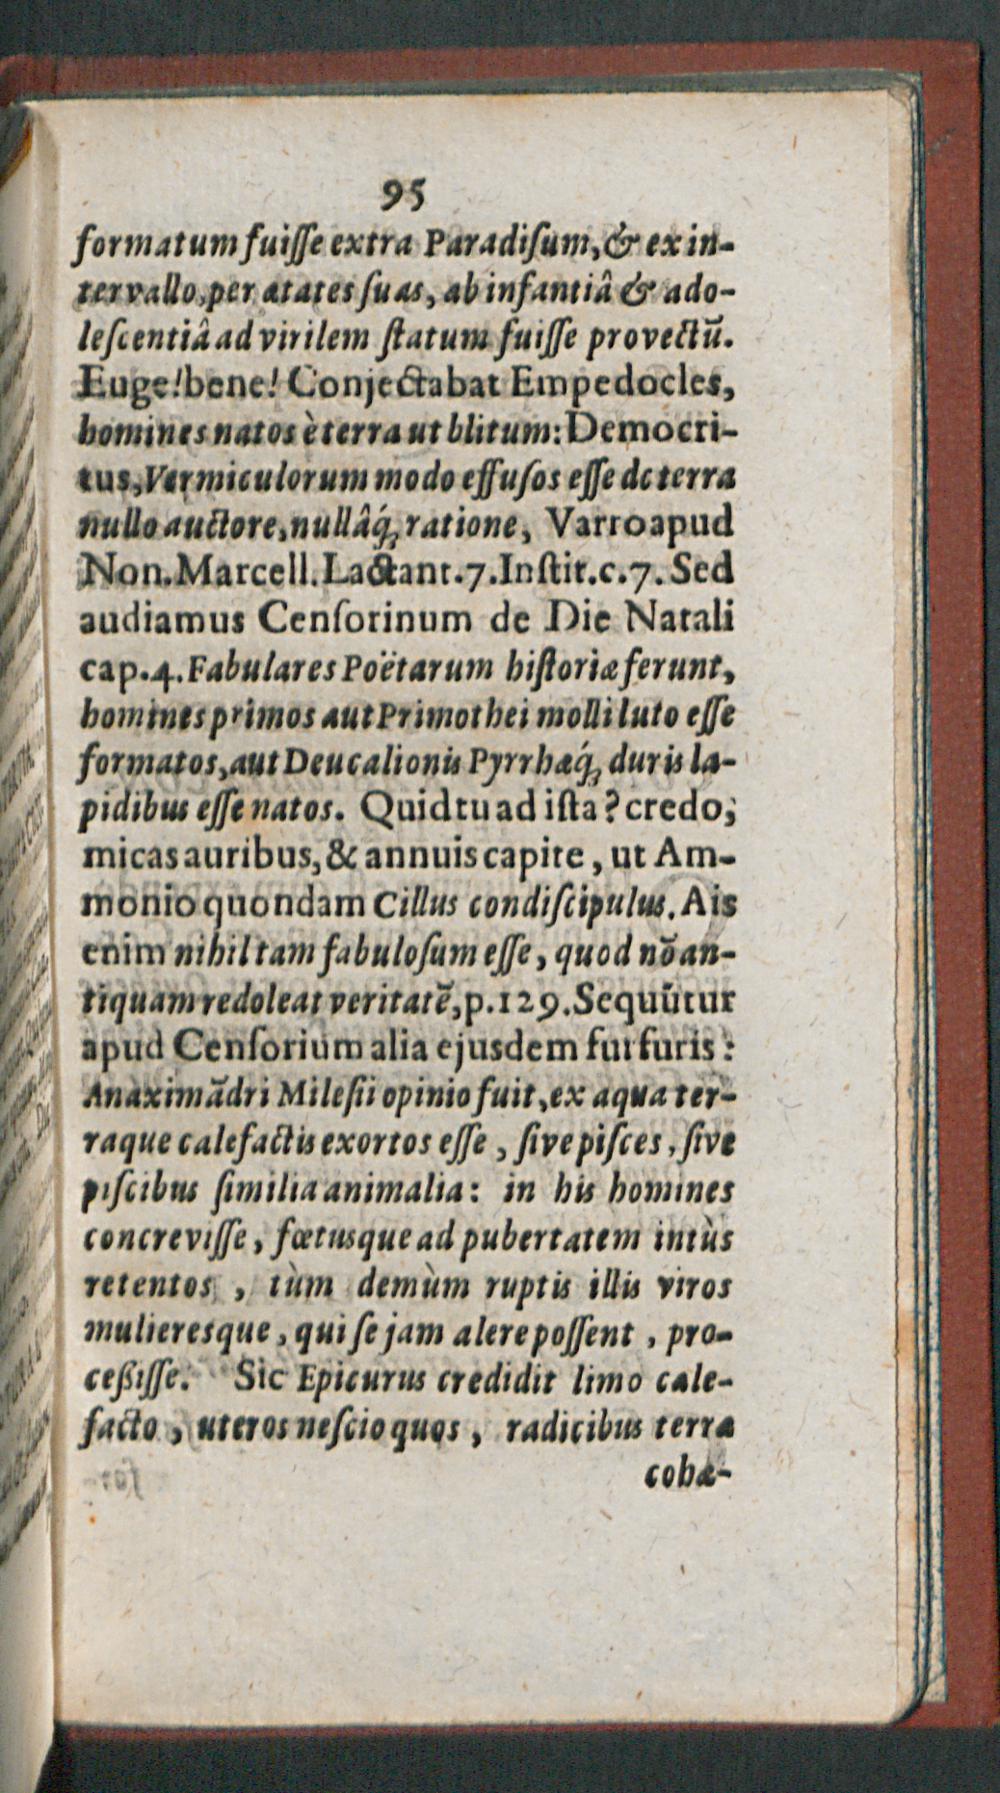 95
formatum fuiſſe extra Paradiſum, & ex in-
tervallo, per ætates ſuas, ab infantiâ & ado-
leſcentiâ ad virilem ſtatum fuiſſe provectū.
Euge! bene! Conjectabat Empedocles,
homines natos è terra ut blitum: Democri-
tus, Vermiculorum modo effuſos eſſe de terra
nullo auctore, nullâq́; ratione, Varro apud
Non. Marcell. Lactant. 7. Inſtit. c. 7. Sed
audiamus Cenſorinum de Die Natali
cap. 4. Fabulares Poëtarum hiſtoriæ ferunt,
homines primos aut Primothei molli luto eſſe
formatos, aut Deucalionis Pyrrhæq́; duris la-
pidibus eſſe natos. Quid tu ad iſta? credo,
micas auribus, & annuis capite, ut Am-
monio quondam Cillus condiſcipulus. Ais
enim nihil tam fabuloſum eſſe, quod nō an-
tiquam redoleat veritatē, p. 129. Sequūtur
apud Cenſorium alia ejusdem furfuris:
Anaximādri Mileſii opinio fuit, ex aqua ter-
raque calefactis exortos eſſe, ſive piſces, ſive
piſcibus ſimilia animalia: in his homines
concreviſſe, fœtusque ad pubertatem intùs
retentos, tùm demùm ruptis illis viros
mulieresque, qui ſe jam alere poſſent, pro-
ceßiſſe. Sic Epicurus credidit limo cale-
facto, uteros neſcio quos, radicibus terra
cohæ-